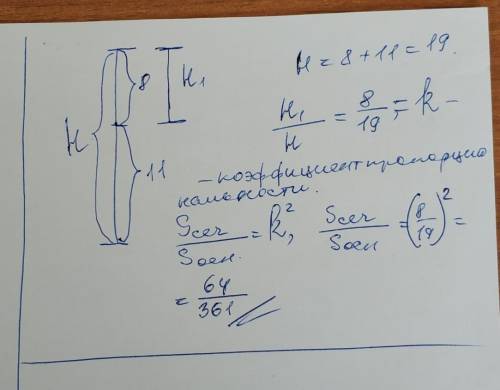 H = 8 + 11 = 19.
8
H₁
H
11
H₁/H = 8/19 = k –
– коэффициент пропорцио
нальности.
Sсеч/Sосн. = k², Sсеч/Sосн = (8/19)² =
= 64/361